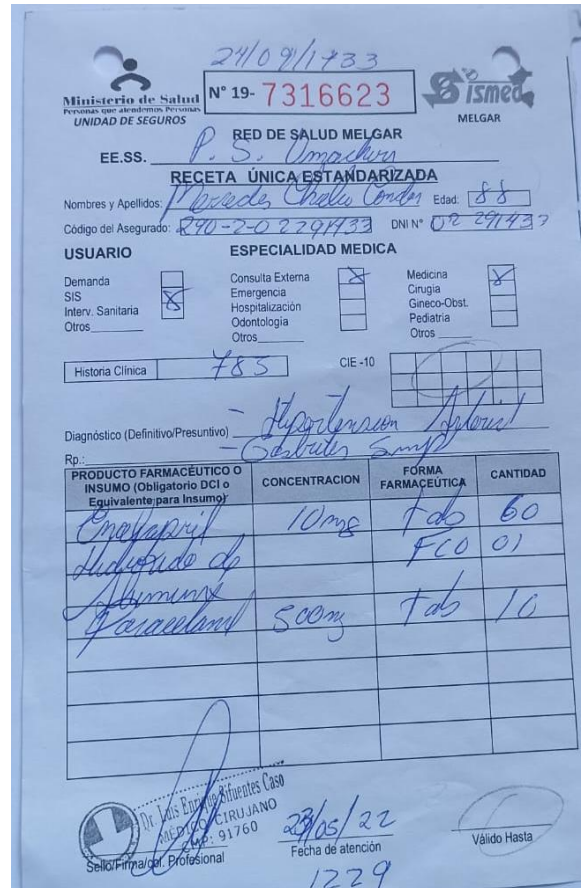 24/09/1933
Ministerio de Salud
Personas que atendemos Personas
UNIDAD DE SEGUROS
N° 19- 7316623
Sismed
MELGAR
RED DE SALUD MELGAR
EE.SS. P. S. Umachiri
RECETA ÚNICA ESTANDARIZADA
Nombres y Apellidos: Mercedes Condori Edad: 88
Código del Asegurado: 240-2-02291433 DNI N° 02291433
USUARIO ESPECIALIDAD MEDICA
Demanda Consulta Externa X Medicina X
SIS X Emergencia Cirugia
Interv. Sanitaria Hospitalización Gineco-Obst.
Otros Odontologia Pediatria
Otros Otros
Historia Clínica 785 CIE -10
Diagnóstico (Definitivo/Presuntivo) - Hipertension Arterial
Rp.: - Gastritis
PRODUCTO FARMACÉUTICO O INSUMO (Obligatorio DCI o Equivalente para Insumo) CONCENTRACION FORMA FARMACEÚTICA CANTIDAD
Enalapril 10mg tab 60
Hidroxido de FCO 01
Aluminio
Paracetamol 500mg Tab 10
Dr. Luis Enrique Sifuentes Caso
MÉDICO CIRUJANO
CMP: 91760
23/05/22
Sello/Firma/col. Profesional Fecha de atención Válido Hasta
1229